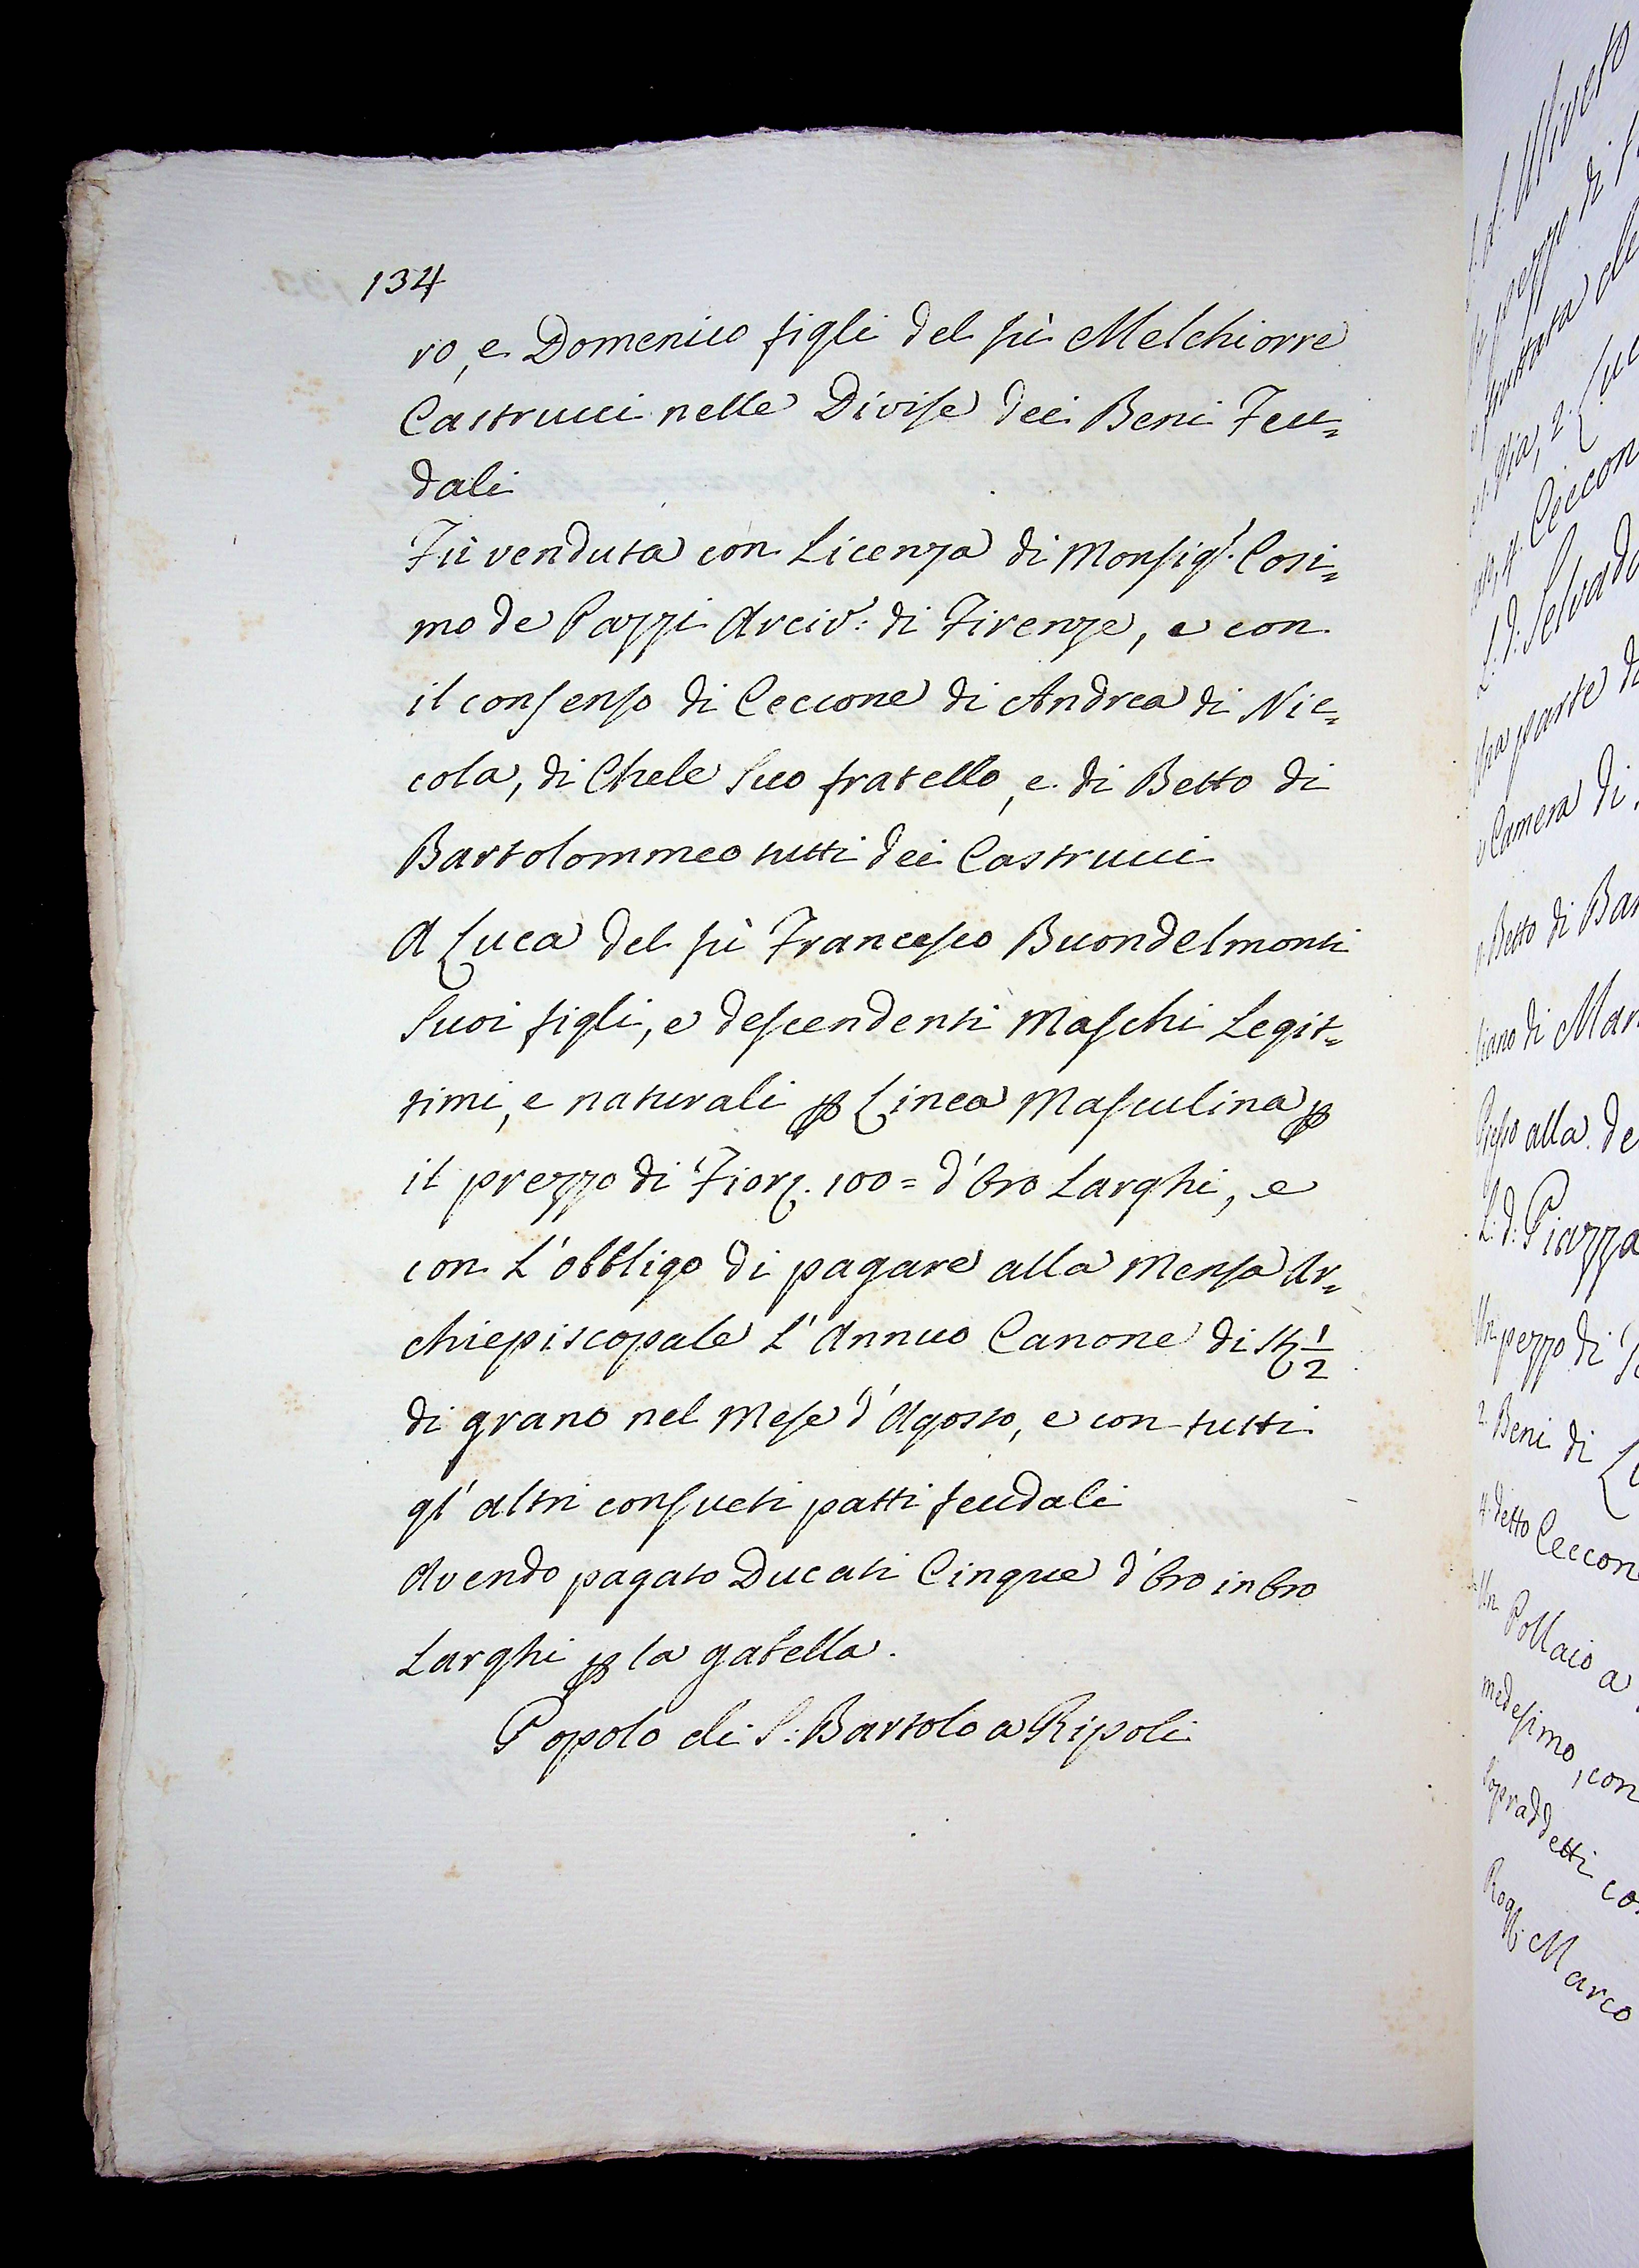 134
ro, e Domenico figli del fù Melchiorre
Castrucci nelle Divise dei Beni Feu=
dali
Fù venduta con Licenza di Monsig.r Cosi=
mo de Pazzi Arciv.o: di Firenze, e con
il consenso di Ceccone di Andrea di Nic=
cola, di Chele Suo fratello, e di Betto di
Bartolommeo tutti dei Castrucci
A Luca del fù Francesco Buondelmonti
Suoi figli, e descendenti Maschi Legit=
timi, e naturali p Linea Masculina p
il prezzo di Fior. 100= d'Oro Larghi, e
con L'obbligo di pagare alla Mensa Ar=
chiepiscopale L'Annuo Canone di St 1/2
di grano nel Mese d'Agosto, e con tutti
gl'altri consueti patti feudali
Avendo pagato Ducati Cinque d'Oro in Oro
Larghi p la gabella.
Popolo di S: Bartolo a Ripoli
pezzo di
L: d: Selvard
parte di
Camera di
Betto di Bar
di Mar
alla de
L: d: Piazza
Un pezzo di
2. Beni di
4. detto Ceccon
Un Pollaio a
medesimo, con
sopraddetti co
Rog. Marco